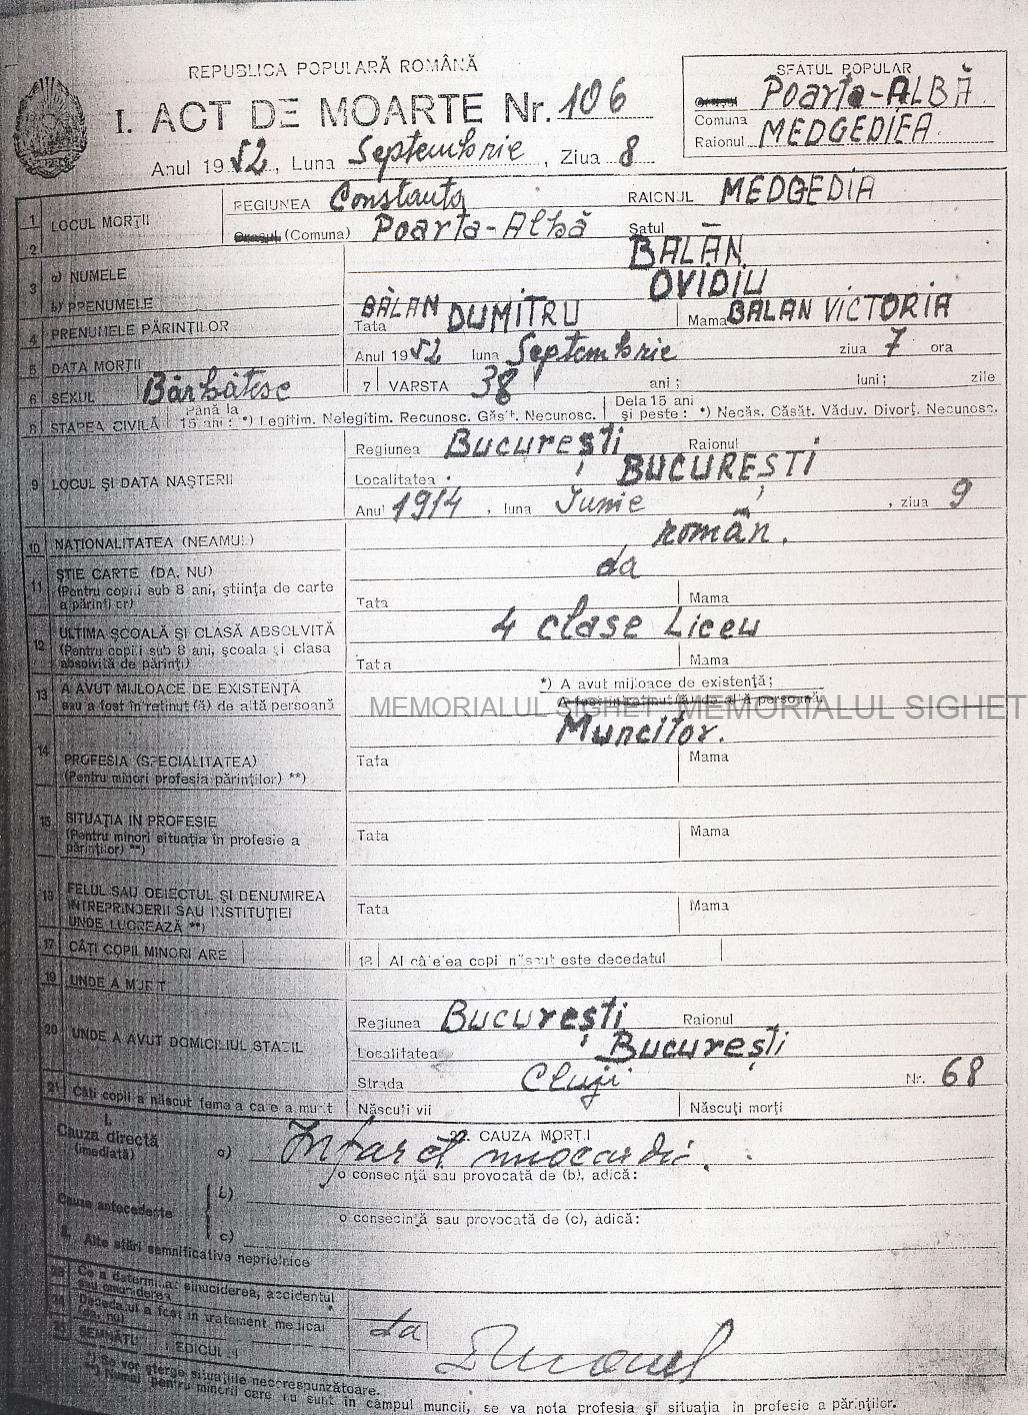 REPUBLICA POPULARĂ ROMÂNĂ
I. ACT DE MOARTE Nr. 106
Anul 1952, Luna Septembrie, Ziua 8
SFATUL POPULAR
Orașul Poarta-ALBĂ
Comuna
Raionul MEDGEDIEA
1 LOCUL MORȚII REGIUNEA Constanta RAIONUL MEDGEDIA
2 Orașul (Comuna) Poarta-Albă Satul —
3 a) NUMELE BALAN
b) PRENUMELE OVIDIU
4 PRENUMELE PĂRINȚILOR Tata BĂLAN DUMITRU Mama BALAN VICTORIA
5 DATA MORȚII Anul 1952 luna Septembrie ziua 7 ora
6 SEXUL Bărbătesc 7 VARSTA 38 ani; luni; zile
8 STAREA CIVILĂ Până la 15 ani: *) Legitim. Nelegitim. Recunosc. Găsit. Necunosc. Dela 15 ani și peste: *) Necăs. Căsăt. Văduv. Divorț. Necunosc.
9 LOCUL ȘI DATA NAȘTERII Regiunea București Raionul
Localitatea BUCUREȘTI
Anul 1914, luna Iunie, ziua 9
10 NAȚIONALITATEA (NEAMUL) român.
11 ȘTIE CARTE (DA, NU) da
(Pentru copiii sub 8 ani, știința de carte
a părinților) Tata Mama
12 ULTIMA ȘCOALĂ ȘI CLASĂ ABSOLVITĂ 4 clase Liceu
(Pentru copiii sub 8 ani, școala și clasa
absolvită de părinți) Tata Mama
13 A AVUT MIJLOACE DE EXISTENȚĂ *) A avut mijloace de existență;
sau a fost întreținut (ă) de altă persoană A fost întreținut (ă) de altă persoană.
MEMORIALUL SIGHET MEMORIALUL SIGHET
14 PROFESIA (SPECIALITATEA) Muncitor.
(Pentru minori profesia părinților) **) Tata Mama
15 SITUAȚIA IN PROFESIE
(Pentru minori situația în profesie a
părinților) **) Tata Mama
16 FELUL SAU OBIECTUL ȘI DENUMIREA
INTREPRINDERII SAU INSTITUȚIEI
UNDE LUCREAZĂ **) Tata Mama
17 CÂȚI COPII MINORI ARE 18 Al câtelea copil născut este decedatul
19 UNDE A MURIT
20 UNDE A AVUT DOMICILIUL STABIL Regiunea București Raionul
Localitatea București
Strada Cluj Nr. 68
21 Câți copii a născut femeia care a murit Născuți vii Născuți morți
22. CAUZA MORȚII
I.
Cauza directă
(imediată) a) Infarct miocardic.
o consecință sau provocată de (b), adică:
Cauze antecedente b)
o consecință sau provocată de (c), adică:
c)
II. Alte stări semnificative nepricinice
23 Ce a determinat sinuciderea, accidentul
sau omuciderea
24 Decedatul a fost in tratament medical
(da, nu) da
25 SEMNĂTURA MEDICULUI
*) Se vor șterge situațiile necorespunzătoare.
**) Numai pentru minorii care nu sunt în câmpul muncii, se va nota profesia și situația în profesie a părinților.